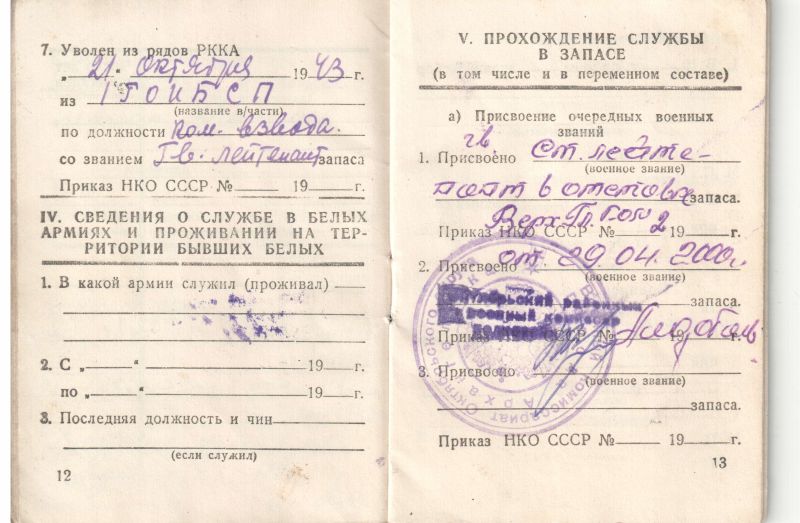 7. Уволен из рядов РККА
„21“ Октября 1943 г.
из 1 ГОИБСП
(название в/части)
по должности ком. взвода.
со званием Гв. лейтенант запаса
Приказ НКО СССР № 19 г.
IV. СВЕДЕНИЯ О СЛУЖБЕ В БЕЛЫХ
АРМИЯХ И ПРОЖИВАНИИ НА ТЕР-
РИТОРИИ БЫВШИХ БЕЛЫХ
1. В какой армии служил (проживал)
2. С „ “ 19 г.
по „ “ 19 г.
3. Последняя должность и чин
(если служил)
12
V. ПРОХОЖДЕНИЕ СЛУЖБЫ
В ЗАПАСЕ
(в том числе и в переменном составе)
а) Присвоение очередных военных
званий
гв.
1. Присвоено Ст. лейте-
(военное звание)
нант в отставке запаса.
Приказ НКО СССР № 2 19 г.
от 29.04.2000г.
2. Присвоено
(военное звание)
Октябрьский районный
военный комиссар
запаса.
Приказ НКО СССР № 19 г.
3. Присвоено
(военное звание)
запаса.
Приказ НКО СССР № 19 г.
13